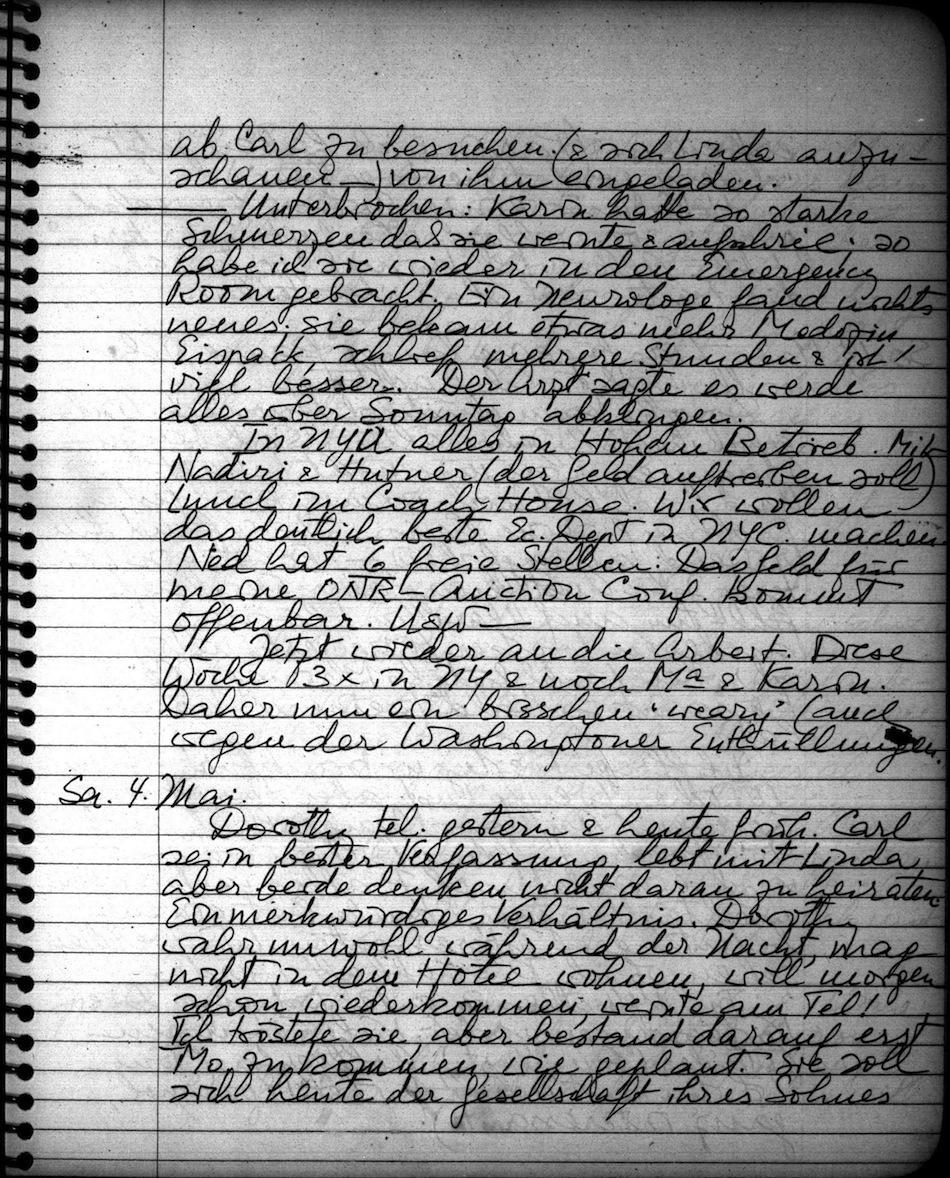 ab. Carl zu besuchen (& sich Linda anzu-
schauen —) von ihm eingeladen.
— Unterbrochen: Karin hatte so starke
Schmerzen daß sie weinte & aufschrie; so
habe ich sie wieder in den Emergency
Room gebracht. Ein Neurologe fand nichts
neues. Sie bekam etwas mehr Medizin
Eispack schlief mehrere Stunden & ist
viel besser. Der Arzt sagte es werde
alles über Sonntag abklingen.
In NYU alles in Hohem Betrieb. Mit
Nadiri & Hutner (der Geld auftreiben soll)
Lunch im Coach House. Wir wollen
das deutlich beste Ec. Dept in NYC. machen.
Ned hat 6 freie Stellen. Das Geld für
meine ONR-Auction Conf. kommt
offenbar. Usw —
Jetzt wieder an die Arbeit. Diese
Woche 3x in NY & noch Ma & Karin.
Daher nun ein bisschen 'weary' (auch
wegen der Washingtoner Enthüllungen.
Sa. 4. Mai.
Dorothy tel. gestern & heute früh. Carl
sei in bester Verfassung, lebt mit Linda,
aber beide denken nicht daran zu heiraten.
Ein merkwürdiges Verhältnis. Dorothy
wahr unwohl während der Nacht, mag
nicht in dem Hotel wohnen, will morgen
schon wiederkommen, weinte am Tel!
Ich tröstete sie, aber bestand darauf erst
Mo. zu kommen, wie geplant. Sie soll
sich heute der Gesellschaft ihres Sohnes